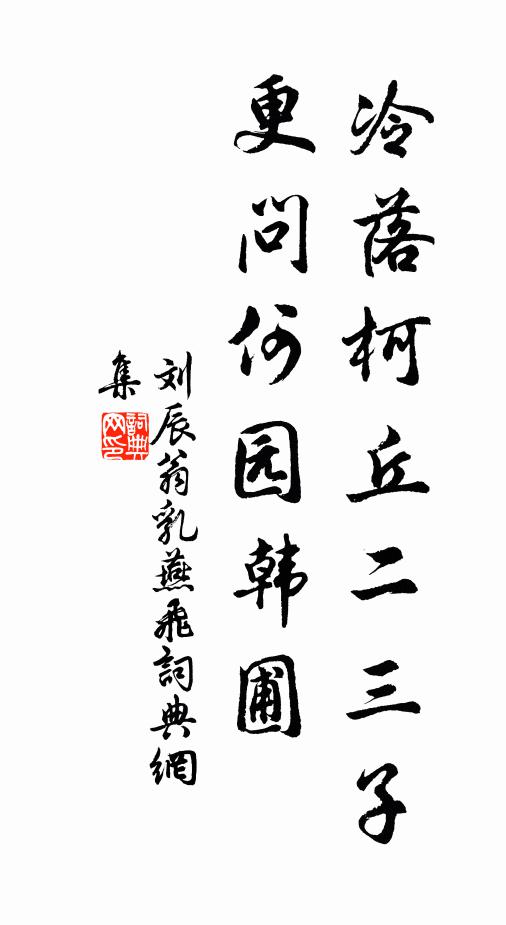 冷落柯丘二三子
更问何园韩圃
刘辰翁乳燕飞詞典網
集
詞典
网印